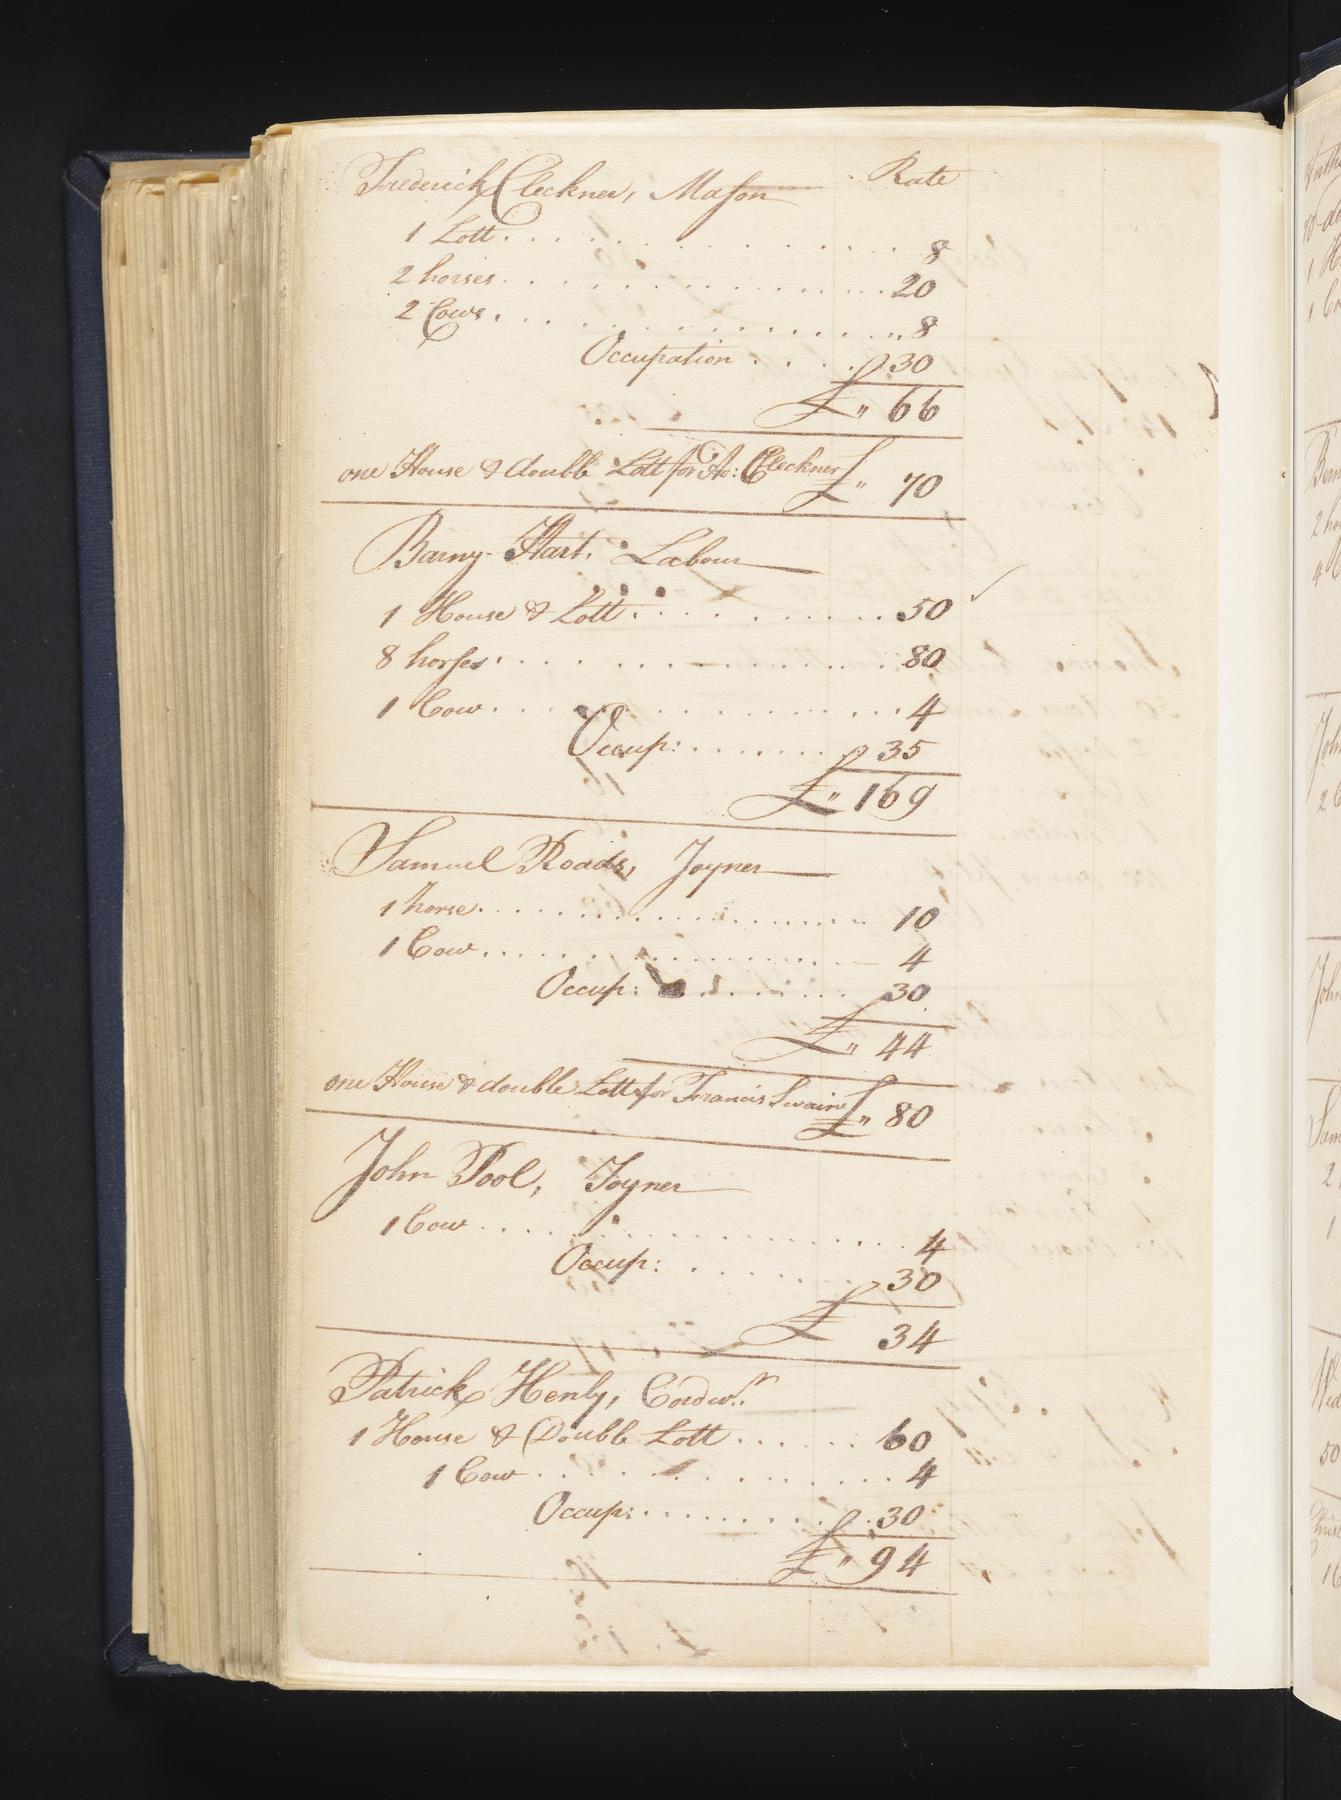 Frederick Cleckner, Mason Rate
1 Lott. . . . . . . . . . 8
2 horses. . . . . . . . . . 20
2 Cows. . . . . . . . . . „8
Occupation . . . . 30
£„ 66
one House & double Lott for Ao: Cleckner £„ 70
Barny Hart, Labour
1 House & Lott. . . . . . . . 50 ✓
8 horses. . . . . . . . . . 80
1 Cow. . . . . . . . . . 4
Occup: . . . . . . . 35
£„ 169
Samuel Roads, Joyner
1 horse. . . . . . . . . . 10
1 Cow. . . . . . . . . . 4
Occup: . . . . . . 30
£„ 44
one House & double Lott for Francis Swaine £„ 80
John Pool, Joyner
1 Cow . . . . . . . . . . 4
Occup: . . . . . . 30
£ 34
Patrick Henly, Cordwr.
1 House & Double Lott . . . . . . 60
1 Cow . . . . . . . . . . 4
Occup: . . . . . . . . 30
£„ 94